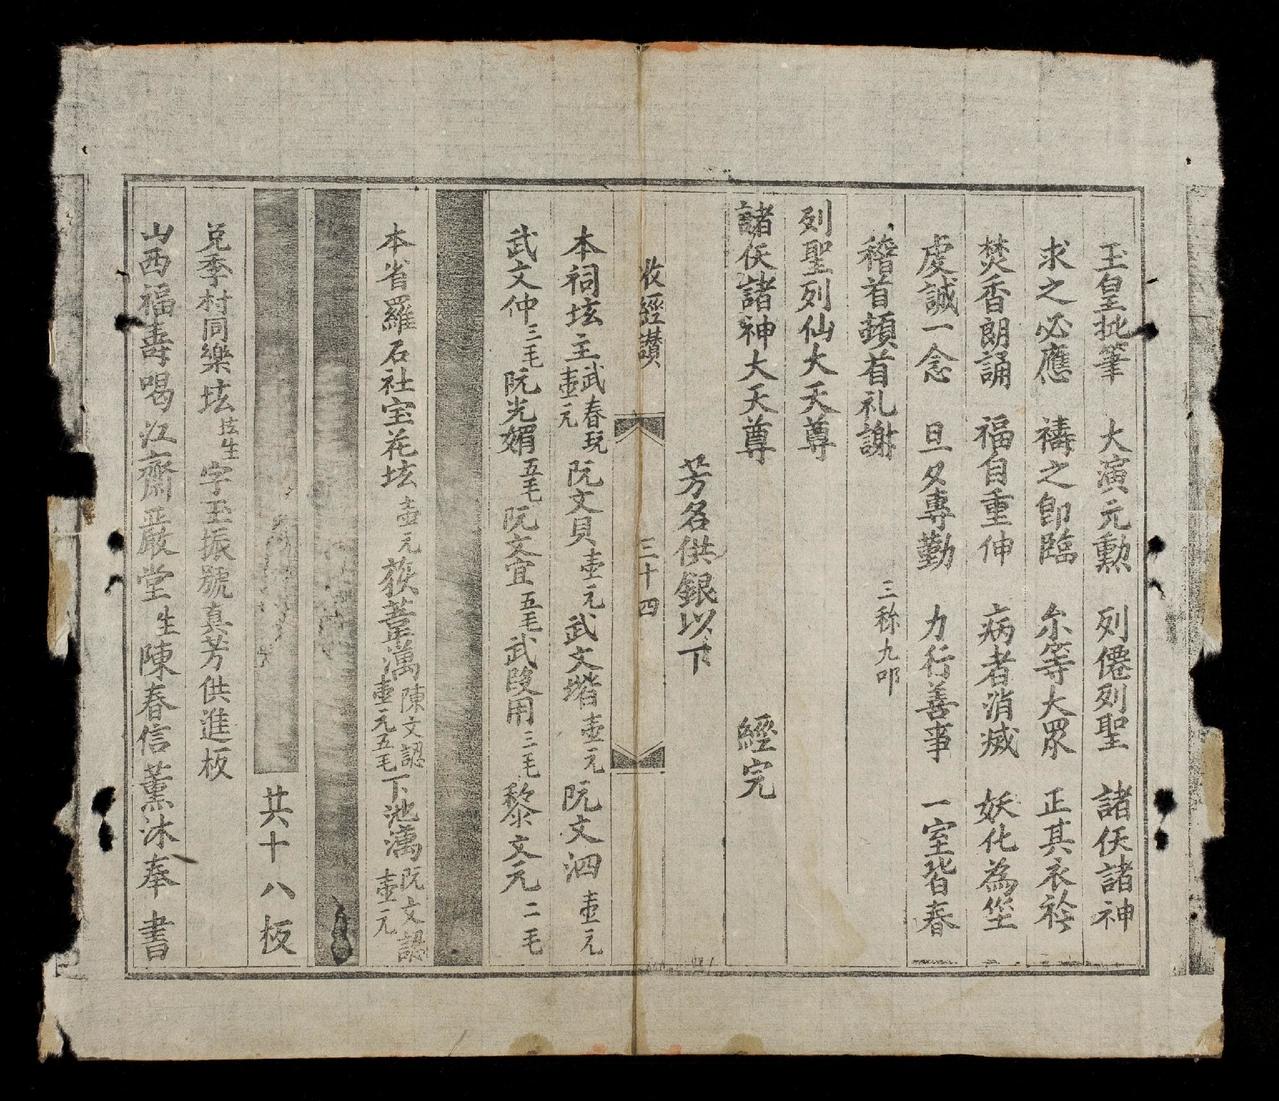 玉皇批筆 大演元勲 列僊列聖 諸仸諸神
求之必應 禱之卽臨 尒等大眾 正其衣衿
焚香朗誦 福自重伸 病者消烕 妖化為塵
虔誠一念 旦夕專勤 力行善事 一室皆春
稽首頓首礼謝 三称九叩
列聖列仙大天尊
諸仸諸神大天尊 經完
芳名供銀以下
收經讃 三十四
本祠坛主武春玩壺元 阮文貝壺元 武文堦壺元 阮文泗壺元
武文仲三毛 阮光媚五毛 阮文宜五毛 武段用三毛 黎文元二毛
本省羅石社宝花坛壺元 荻葦澫陳文認壺元五毛 下池澫阮文認壺元
共十八板
兑季村同樂坛坛生字玉振號真芳供進板
山西福壽喝江齋嚴堂生陳春信薰沐奉書